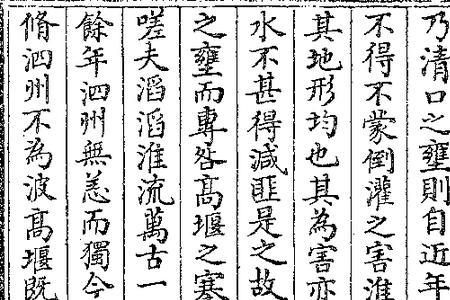 乃清口之壅則自近年
不得不蒙倒灌之害淮
其地形均也其為害亦
水不甚得減匪是之故
之壅而專咎髙堰之塞
嗟夫滔滔淮流萬古一
餘年泗州無恙而獨今
脩泗州不為波髙堰既